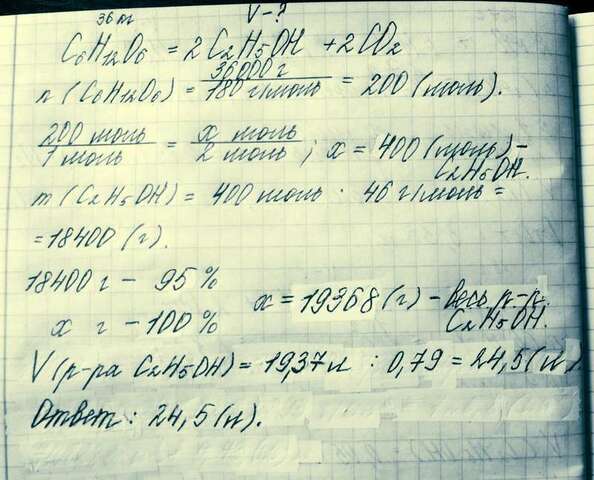 36 кг V - ?
C6H12O6 = 2C2H5OH + 2CO2
n (C6H12O6) = 36000 г / 180 г/моль = 200 (моль).
200 моль / 1 моль = x моль / 2 моль ; x = 400 (моль) - C2H5OH.
m (C2H5OH) = 400 моль · 46 г/моль =
= 18400 (г).
18400 г - 95 %
x г - 100 %
x = 19368 (г) - весь р-р. C2H5OH.
V (р-ра C2H5OH) = 19,37 л : 0,79 = 24,5 (л)
Ответ : 24,5 (л).